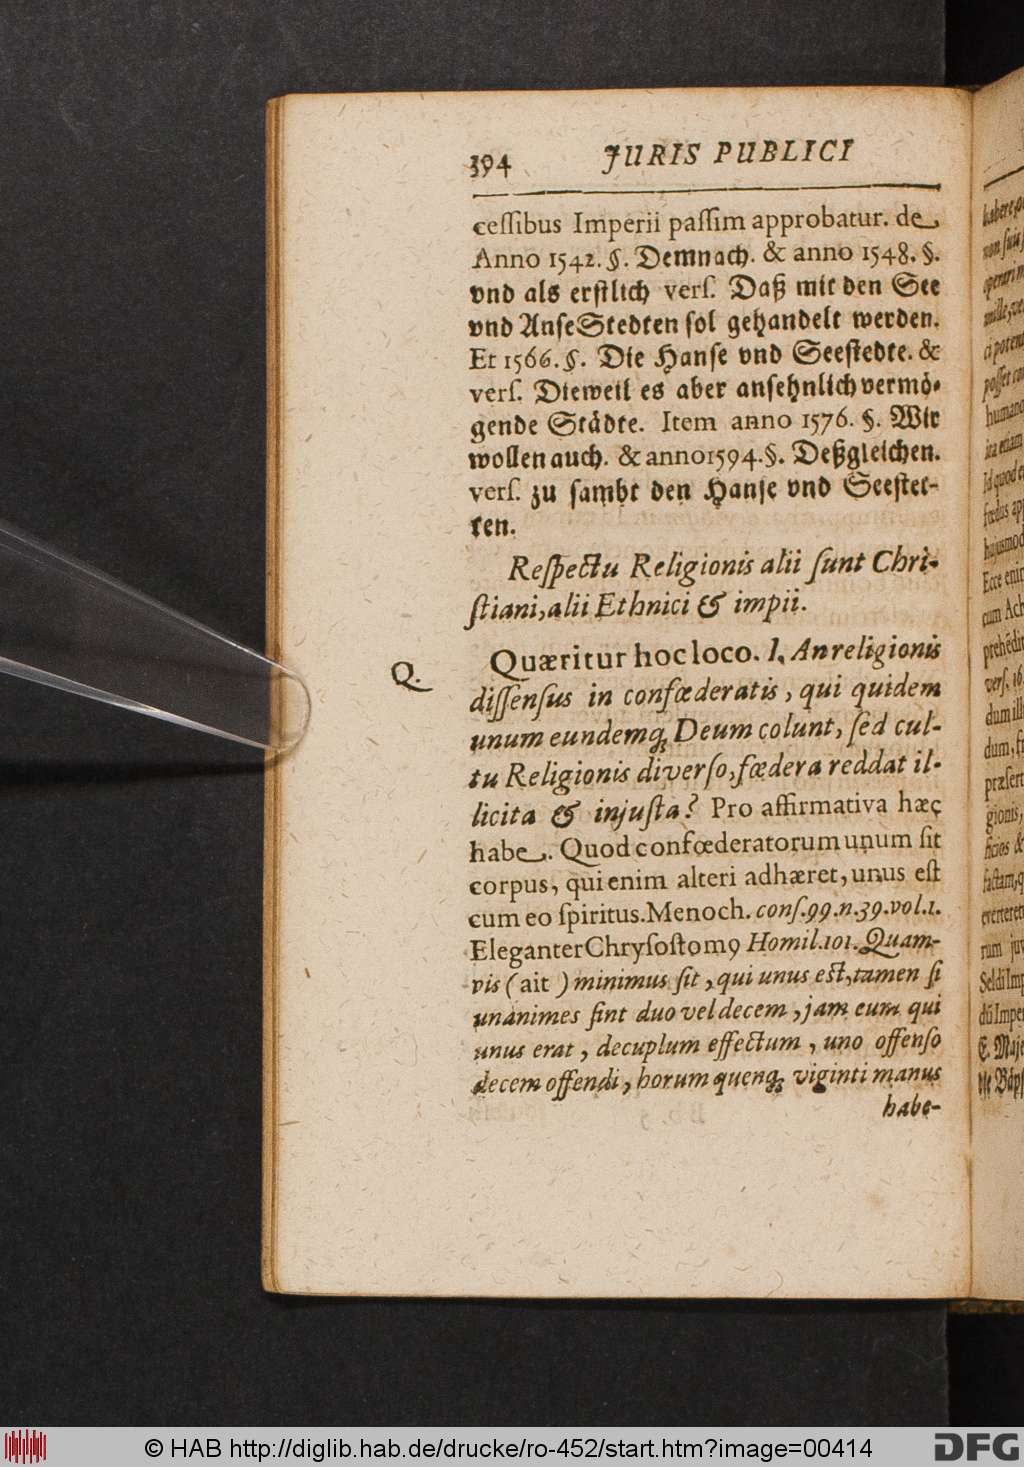 394 JURIS PUBLICI
cessibus Imperii passim approbatur. de
Anno 1542. §. Demnach. & anno 1548. §.
vnd als erstlich vers. Daß mit den See
vnd AnseStedten sol gehandelt werden.
Et 1566. §. Die Hanse vnd Seestedte. &
vers. Dieweil es aber ansehnlich vermö-
gende Städte. Item anno 1576. §. Wir
wollen auch. & anno 1594. §. Deßgleichen.
vers. zu sambt den Hanse vnd Seestet-
ten.
Respectu Religionis alii sunt Chri-
stiani, alii Ethnici & impii.
Q. Quæritur hoc loco. 1. An religionis
dissensus in confœderatis, qui quidem
unum eundemq; Deum colunt, sed cul-
tu Religionis diverso, fœdera reddat il-
licita & injusta? Pro affirmativa hæc
habe. Quod confœderatorum unum sit
corpus, qui enim alteri adhæret, unus est
cum eo spiritus. Menoch. cons. 99. n. 39. vol. 1.
Eleganter Chrysostom9 Homil. 101. Quam-
vis (ait) minimus sit, qui unus est, tamen si
unanimes sint duo vel decem, jam eum qui
unus erat, decuplum effectum, uno offenso
decem offendi, horum quenq; viginti manus
habe-
habere
non suis
mille,
ci potent
posset
humano
ita etiam
Id quod
fœdus
hujusmod
Ecce enim
cum Ach
vers. 16
dum ill
dum,
præsert
gionis,
ficios &
factam,
everteren
rum
dū Impe
E. Maje
die Bäps
© HAB http://diglib.hab.de/drucke/ro-452/start.htm?image=00414
DFG